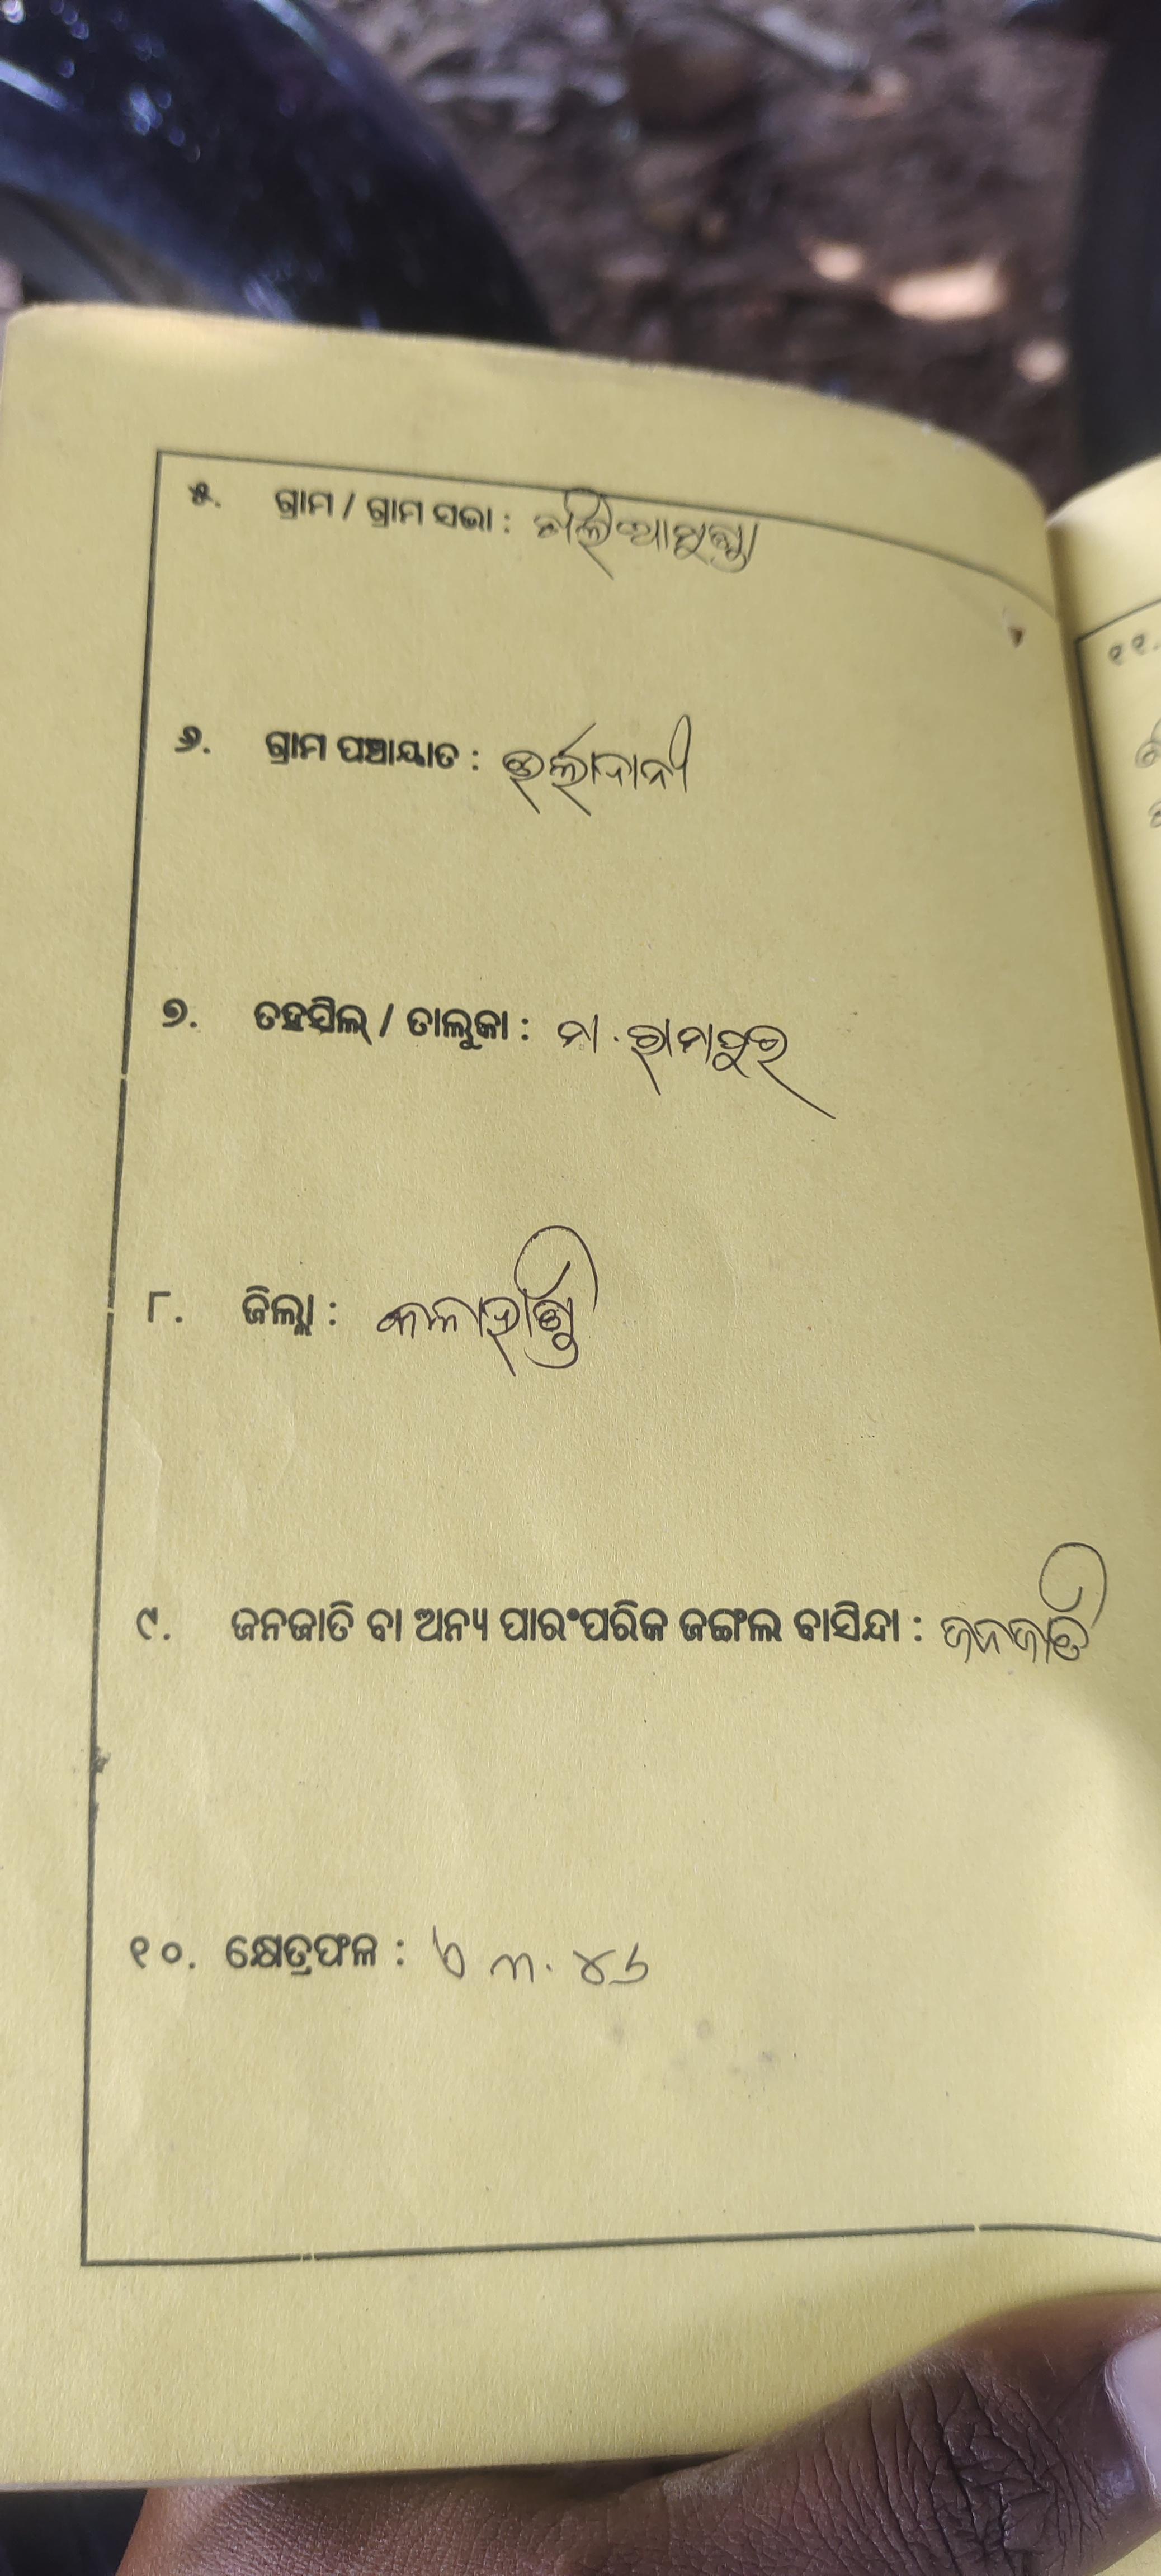 ୫. ଗ୍ରାମ / ଗ୍ରାମ ସଭା :
୬. ଗ୍ରାମ ପଞ୍ଚାୟାତ :
୭. ତହସିଲ୍ / ତାଲୁକା : ମା. ରାମପୁର
୮. ଜିଲ୍ଲା : କଳାହାଣ୍ଡି
୯. ଜନଜାତି ବା ଅନ୍ୟ ପାରଂପରିକ ଜଙ୍ଗଲ ବାସିନ୍ଦା : ଜନଜାତି
୧୦. କ୍ଷେତ୍ରଫଳ : ଏ ୩.୪୬
୧୧.